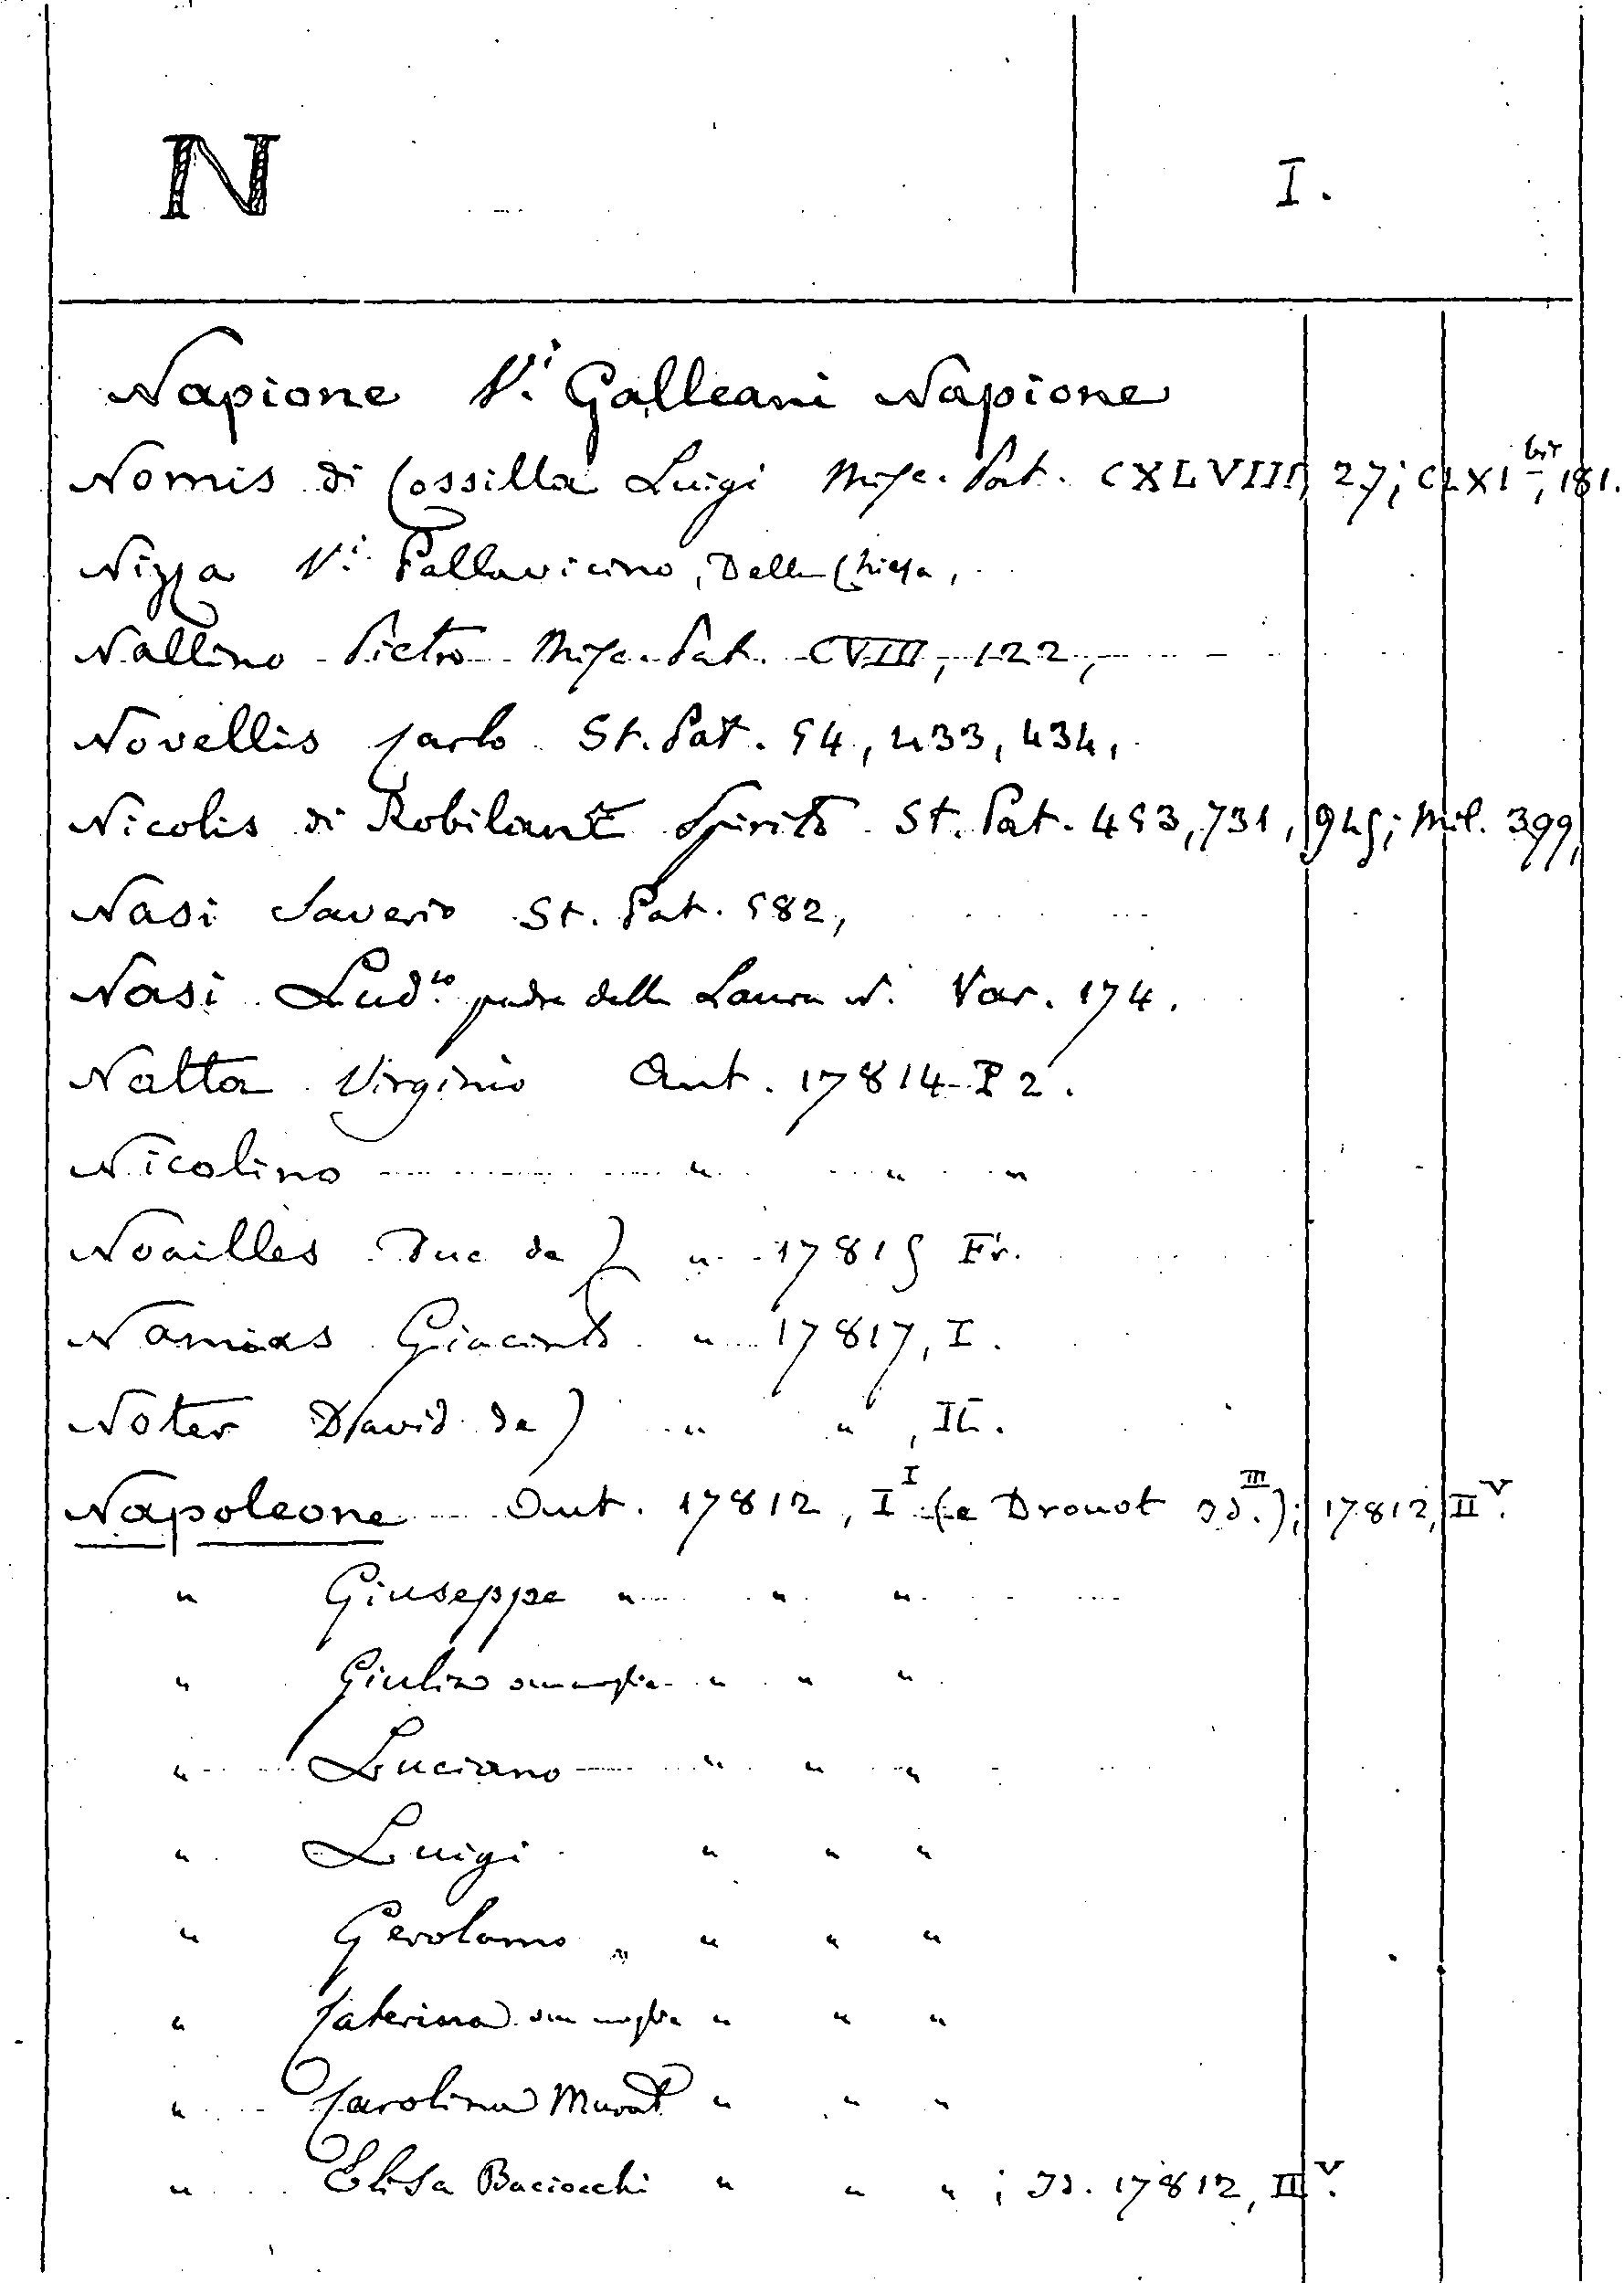 N
I.
Napione V.i Galleani Napione
Nomis di Cossilla Luigi Misc. Pat. CXLVIII, 27; CLXI bis, 181.
Nizza V.i Pallavicino, Della Chiesa,
Nallino Pietro Misc. Pat. CVIII, 122,
Novellis Carlo St. Pat. 54, 433, 434,
Nicolis di Robilant Spirito St. Pat. 453, 731, 945; Mil. 399,
Nasi Saverio St. Pat. 582,
Nasi Lud.co padre della Laura N. Var. 174.
Natta Virginio Aut. 17814 P 2.
Nicolino " " "
Noailles Duc de) " 17815 Fr.
Namias Giacinto " 17817, I.
Noter David de) " " , II.
Napoleone Aut. 17812, I I (e Drouot Id. III); 17812, II V.
" Giuseppe " " "
" Giulia sua moglie " " "
" Luciano " " "
" Luigi " " "
" Gerolamo " " " "
" Caterina sua moglie " " "
" Carolina Murat " " "
" Elisa Baciocchi " " " ; Id. 17812, II V.